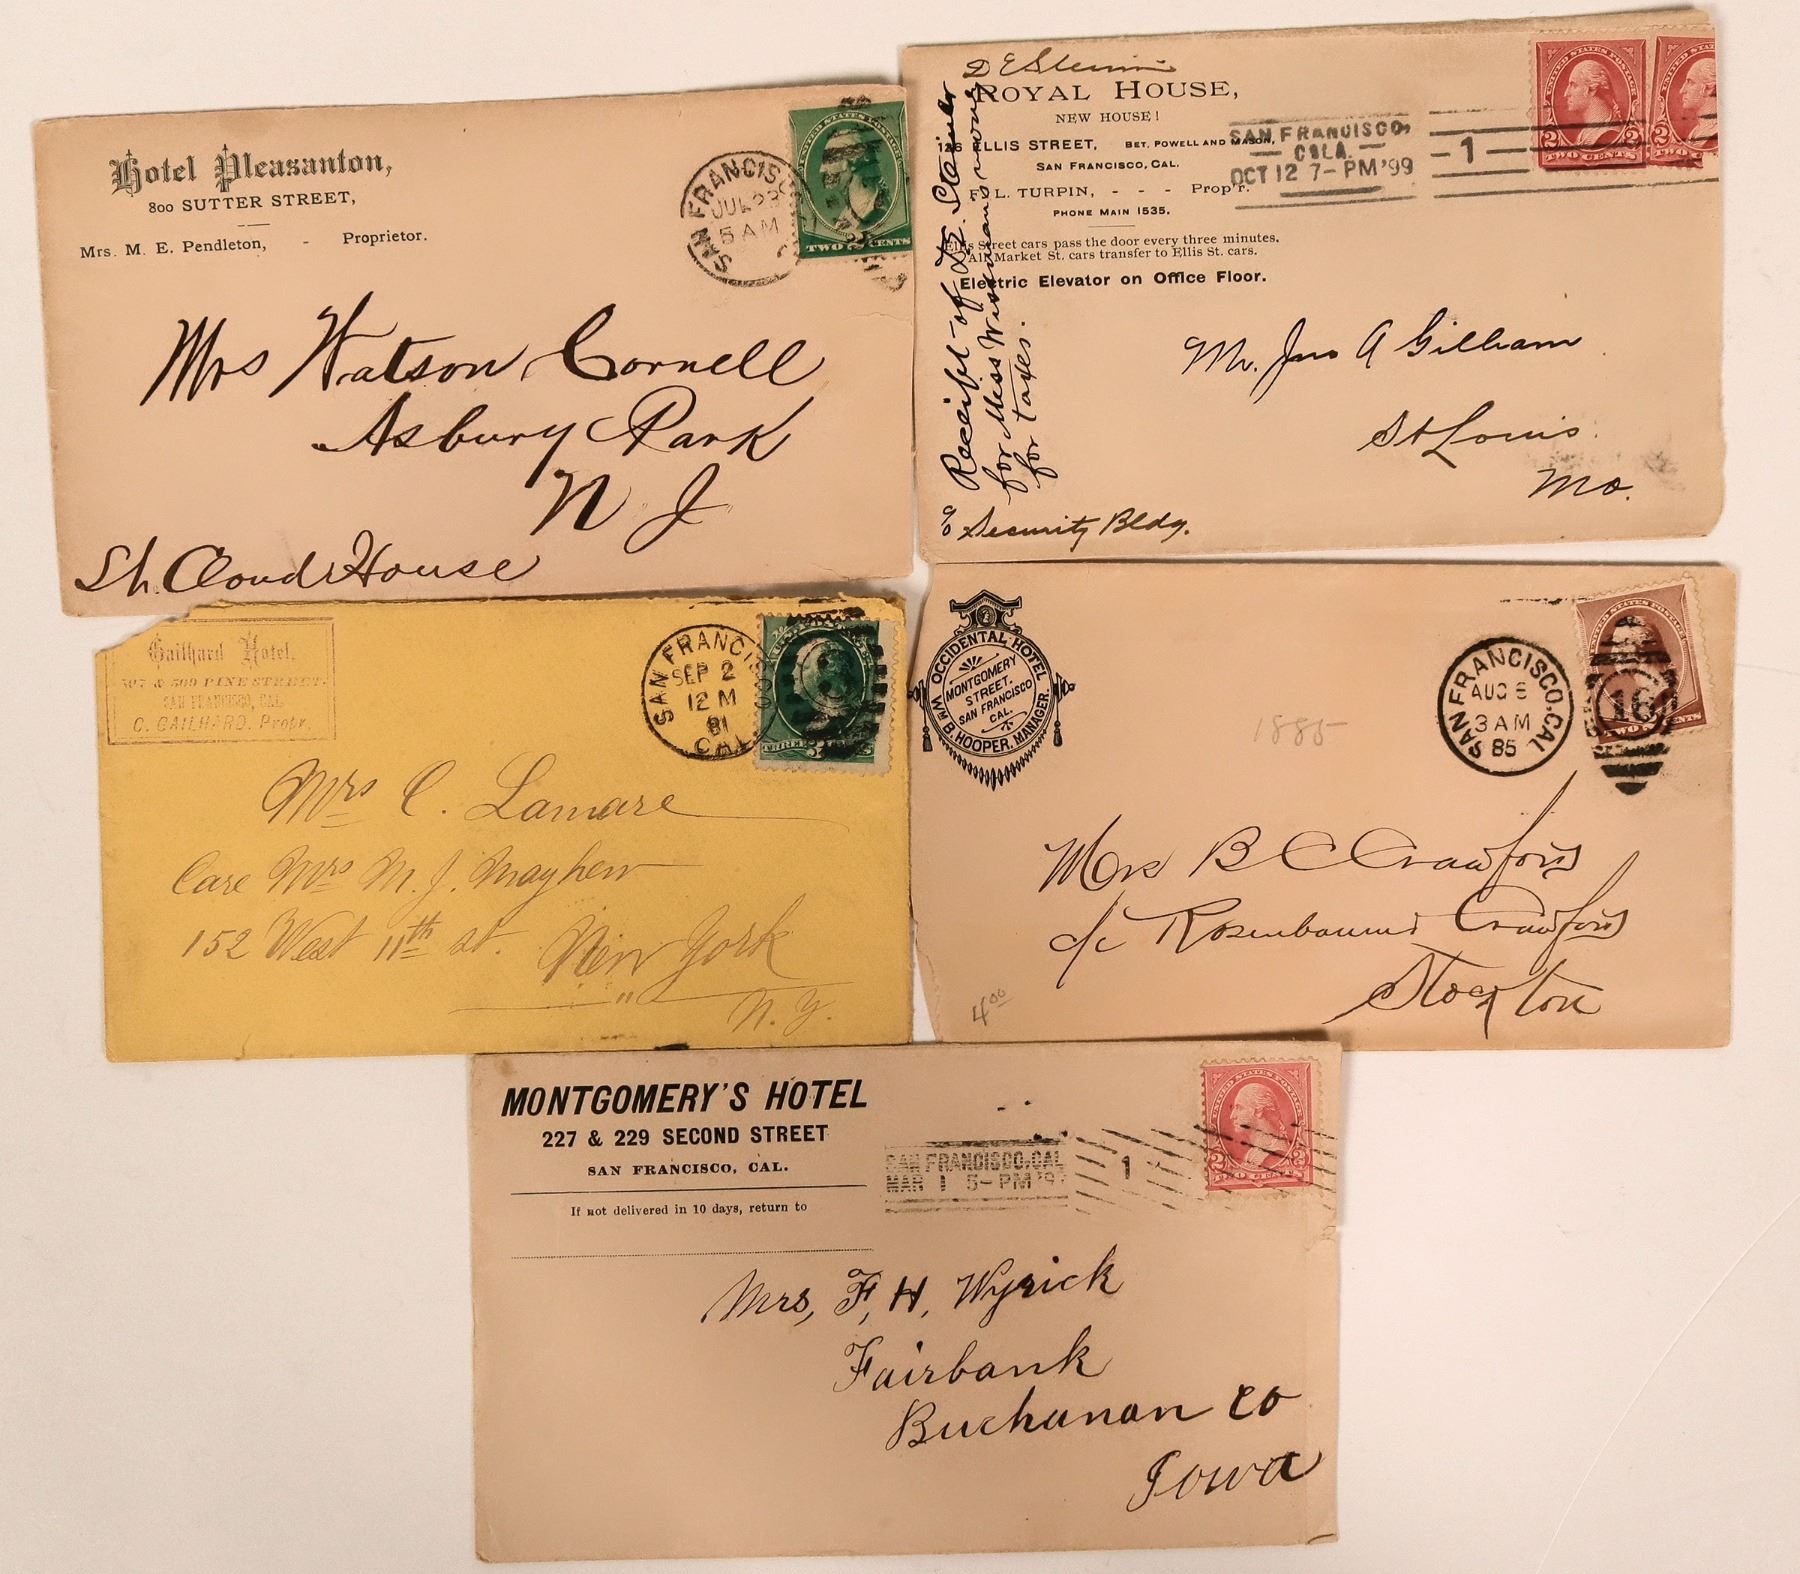 Hotel Pleasanton,
800 SUTTER STREET,
Mrs. M. E. Pendleton, - Proprietor.
SAN FRANCISCO
JUL 23
5 AM
UNITED STATES POSTAGE
TWO 2 CENTS
Mrs Watson Cornell
Asbury Park
N J
St. Cloud House
ROYAL HOUSE,
NEW HOUSE!
126 ELLIS STREET, BET. POWELL AND MASON,
SAN FRANCISCO, CAL.
F. L. TURPIN, - - - Prop'r.
PHONE MAIN 1535.
Ellis Street cars pass the door every three minutes.
All Market St. cars transfer to Ellis St. cars.
Electric Elevator on Office Floor.
Receipt of
for Miss
for taxes.
SAN FRANCISCO,
CALA.
OCT 12 7-PM '99
1
UNITED STATES POSTAGE
2 2
TWO CENTS
UNITED
2
TWO CENTS
Mr. Jno A Gilliam
St Louis.
Mo.
c/o Security Bldg.
Gailhard Hotel.
507 & 509 PINE STREET.
SAN FRANCISCO, CAL.
C. GAILHARD, Propr.
SAN FRANCISCO
SEP 2
12 M
81
CAL
THREE 3 CENTS
Mrs C. Lamare
Care Mrs M. J. Mayhew
152 West 11th st. New York
"
N. Y.
OCCIDENTAL HOTEL
MONTGOMERY
STREET.
SAN FRANCISCO
CAL.
WM B. HOOPER, MANAGER.
1885
SAN FRANCISCO, CAL.
AUG 6
3 AM
85
16
UNITED STATES POSTAGE
TWO CENTS
Mrs B C Crawford
c/o Rosenbaum & Crawford
Stockton
4.00
MONTGOMERY'S HOTEL
227 & 229 SECOND STREET
SAN FRANCISCO, CAL.
If not delivered in 10 days, return to
SAN FRANCISCO, CAL
MAR 1 5-PM '9
1
UNITED STATES POSTAGE
2 2
TWO CENTS
Mrs, F, H, Wyrick
Fairbank
Buchanan Co
Iowa